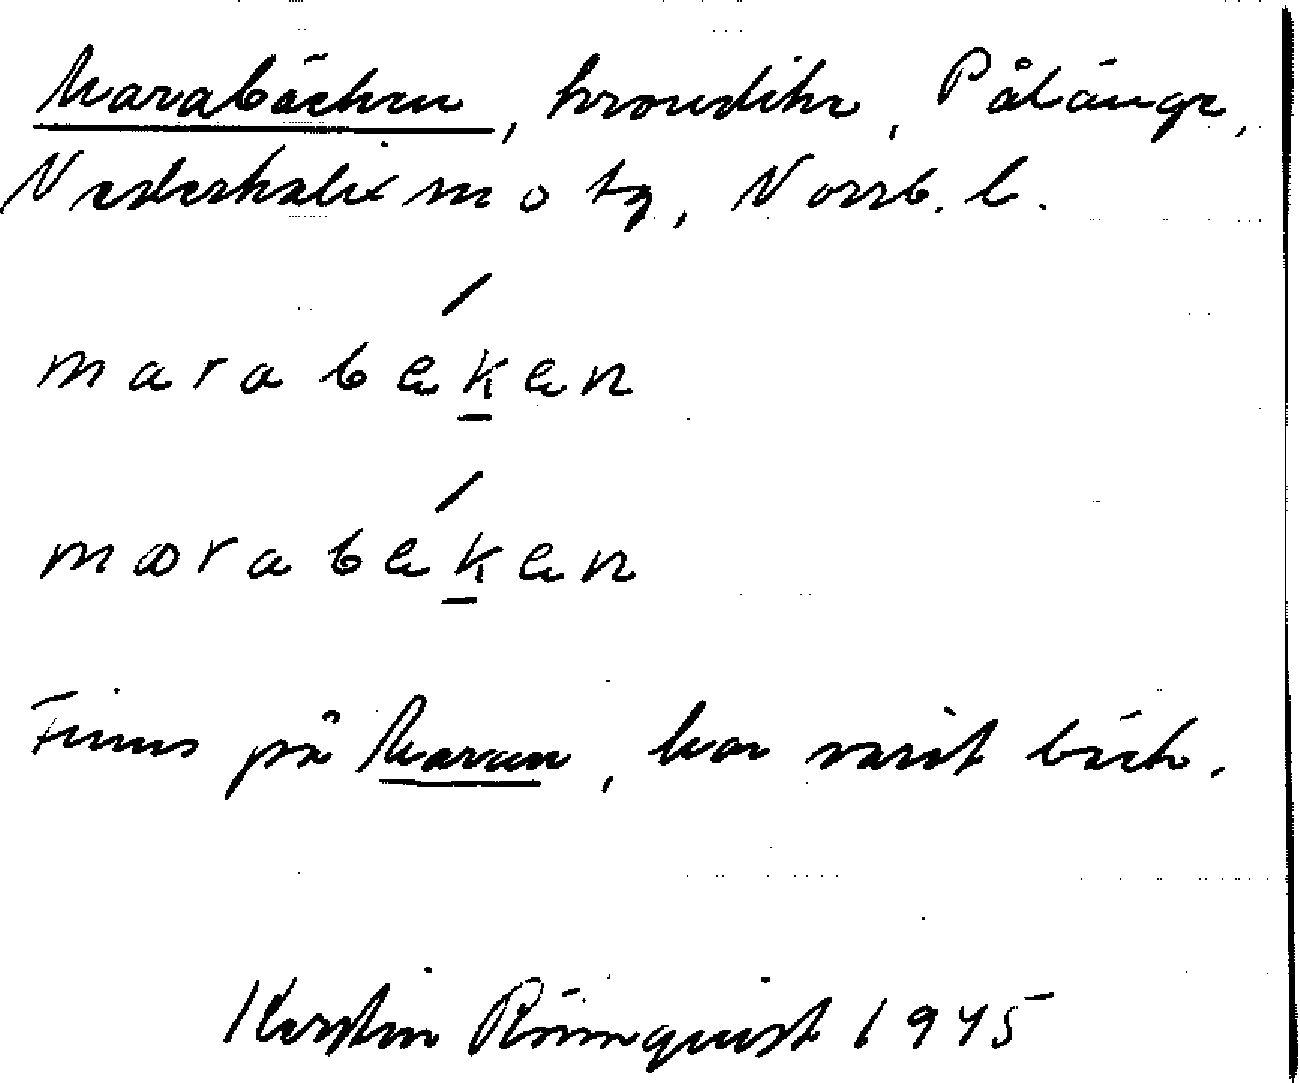 Marabäcken, krondike, Pålänge,
Nederkalix sn o tg, Norrb. l.
marabäken
mɑrabäken
Finns på Maran, har varit bäck.
Kerstin Rönnquist 1945